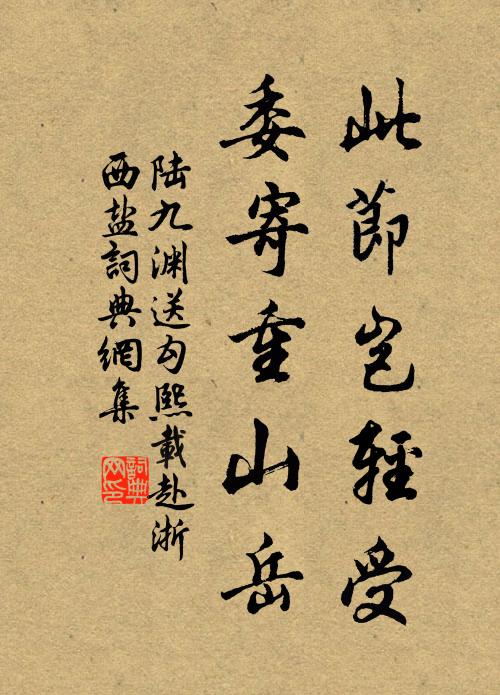 此節岂輕受
委寄重山岳
陆九渊送勾熙載赴浙
西盐詞典網集
詞典
网印